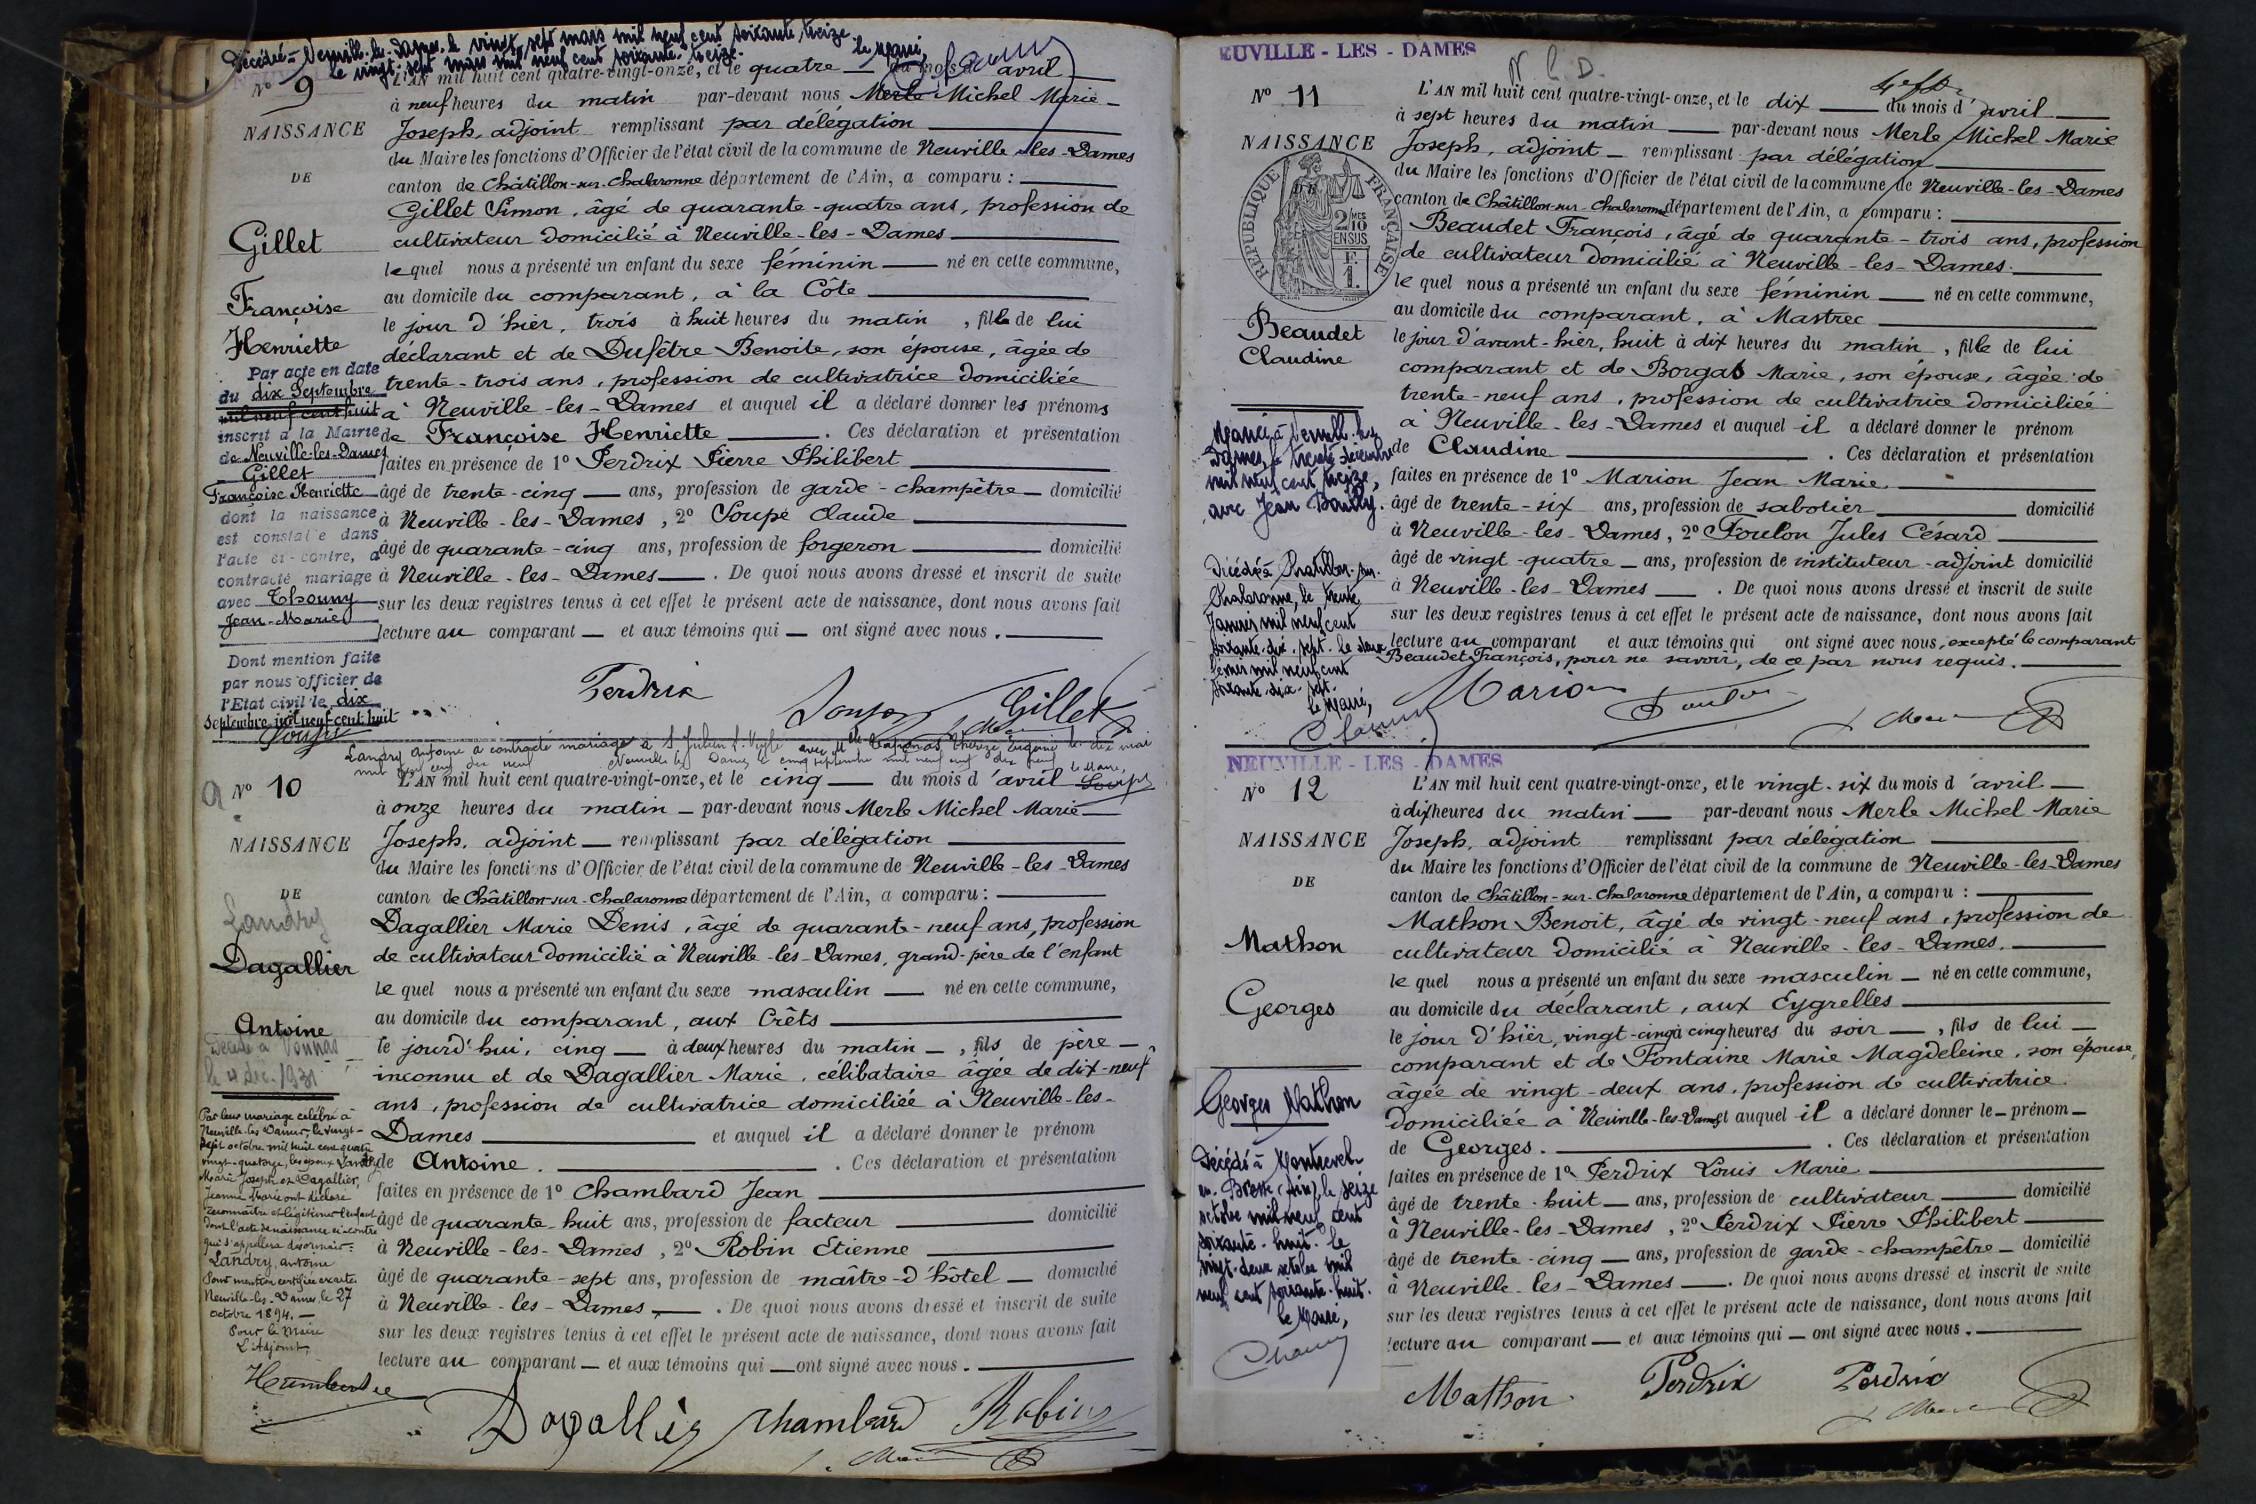 Décédée à Neuville-les-Dames le vingt sept mars mil neuf cent soixante treize
le vingt-sept mars mil neuf cent soixante-treize. le Maire,
N° 9
NAISSANCE
DE
Gillet
Françoise
Henriette
Par acte en date
du dix Septembre
mil neuf cent huit
inscrit à la Mairie
de Neuville-les-Dames
Gillet
Françoise Henriette
dont la naissance
est constatée dans
l'acte ci-contre, a
contracté mariage
avec Thouny
Jean-Marie
Dont mention faite
par nous officier de
l'Etat civil le dix
Septembre mil neuf cent huit
L'AN mil huit cent quatre-vingt-onze, et le quatre du mois d'avril
à neuf heures du matin par-devant nous Merle Michel Marie
Joseph, adjoint remplissant par délégation
du Maire les fonctions d'Officier de l'état civil de la commune de Neuville-les-Dames
canton de Châtillon-sur-Chalaronne département de l'Ain, a comparu :
Gillet Simon, âgé de quarante-quatre ans, profession de
cultivateur domicilié à Neuville-les-Dames
lequel nous a présenté un enfant du sexe féminin né en cette commune,
au domicile du comparant, à la Côte
le jour d'hier, trois à huit heures du matin, fille de lui
déclarant et de Dufêtre Benoite, son épouse, âgée de
trente-trois ans, profession de cultivatrice domiciliée
à Neuville-les-Dames et auquel il a déclaré donner les prénoms
de Françoise Henriette. Ces déclaration et présentation
faites en présence de 1° Perdrix Pierre Philibert
âgé de trente-cinq ans, profession de garde-champêtre domicilié
à Neuville-les-Dames, 2° Soupe Claude
âgé de quarante-cinq ans, profession de forgeron domicilié
à Neuville-les-Dames. De quoi nous avons dressé et inscrit de suite
sur les deux registres tenus à cet effet le présent acte de naissance, dont nous avons fait
lecture au comparant et aux témoins qui ont signé avec nous.
Perdrix Soupe Gillet
Landry Antoine a contracté mariage à St Julien s. Veyle avec Thérèze Eugénie le dix mai
mil neuf cent dix neuf Neuville les Dames le cinq septembre mil neuf cent dix neuf le Maire,
N° 10
NAISSANCE
DE
Landry
Dagallier
Antoine
Décédé à Vonnas
le 4 déc. 1931
Par leur mariage célébré à
Neuville-les-Dames, le vingt-
sept octobre mil huit cent quatre
vingt-quatorze, les époux Landry
Marie Joseph et Dagallier,
Jeanne Marie ont déclaré
reconnaître et légitimer l'enfant
dont l'acte de naissance ci-contre
qui s'appellera désormais :
Landry, antoine
Pour mention certifiée exacte.
Neuville-les-Dames, le 27
octobre 1894.
Pour le Maire
L'Adjoint,
L'AN mil huit cent quatre-vingt-onze, et le cinq du mois d'avril
à onze heures du matin par-devant nous Merle Michel Marie
Joseph, adjoint remplissant par délégation
du Maire les fonctions d'Officier de l'état civil de la commune de Neuville-les-Dames
canton de Châtillon-sur-Chalaronne département de l'Ain, a comparu :
Dagallier Marie Denis, âgé de quarante-neuf ans, profession
de cultivateur domicilié à Neuville-les-Dames, grand-père de l'enfant
lequel nous a présenté un enfant du sexe masculin né en cette commune,
au domicile du comparant, aux Crêts
le jourd'hui, cinq à deux heures du matin, fils de père
inconnu et de Dagallier Marie, célibataire âgée de dix-neuf
ans, profession de cultivatrice domiciliée à Neuville-les-
Dames et auquel il a déclaré donner le prénom
de Antoine. Ces déclaration et présentation
faites en présence de 1° Chambard Jean
âgé de quarante-huit ans, profession de facteur domicilié
à Neuville-les-Dames, 2° Robin Etienne
âgé de quarante-sept ans, profession de maître-d'hôtel domicilié
à Neuville-les-Dames. De quoi nous avons dressé et inscrit de suite
sur les deux registres tenus à cet effet le présent acte de naissance, dont nous avons fait
lecture au comparant et aux témoins qui ont signé avec nous.
Dagallier Chambard Robin
EUVILLE - LES - DAMES
N. L. D.
N° 11
NAISSANCE
RÉPUBLIQUE FRANÇAISE
2/10
EN SUS
F.
1.
Beaudet
Claudine
Mariée à Neuville-les
Dames, le trente décembre
mil neuf cent treize,
avec Jean Bailly.
Décédée à Chatillon-sur-
Chalaronne, le trente
Janvier mil neuf cent
soixante-dix-sept. le deux
février mil neuf cent
soixante-dix-sept.
le Maire,
L'AN mil huit cent quatre-vingt-onze, et le dix du mois d'avril
à sept heures du matin par-devant nous Merle Michel Marie
Joseph, adjoint remplissant par délégation
du Maire les fonctions d'Officier de l'état civil de la commune de Neuville-les-Dames
canton de Châtillon-sur-Chalaronne département de l'Ain, a comparu :
Beaudet François, âgé de quarante-trois ans, profession
de cultivateur domicilié à Neuville-les-Dames.
lequel nous a présenté un enfant du sexe féminin né en cette commune,
au domicile du comparant, à Mastrec
le jour d'avant-hier, huit à dix heures du matin, fille de lui
comparant et de Borgat Marie, son épouse, âgée de
trente-neuf ans, profession de cultivatrice domiciliée
à Neuville-les-Dames et auquel il a déclaré donner le prénom
de Claudine. Ces déclaration et présentation
faites en présence de 1° Marion Jean Marie.
âgé de trente-six ans, profession de sabotier domicilié
à Neuville-les-Dames, 2° Foulon Jules Césard
âgé de vingt-quatre ans, profession de instituteur-adjoint domicilié
à Neuville-les-Dames. De quoi nous avons dressé et inscrit de suite
sur les deux registres tenus à cet effet le présent acte de naissance, dont nous avons fait
lecture au comparant et aux témoins qui ont signé avec nous, excepté le comparant
Beaudet François, pour ne savoir, de ce par nous requis.
Marion Foulon
NEUVILLE - LES - DAMES
N° 12
NAISSANCE
DE
Mathon
Georges
Georges Mathon
Décédé à Montrevel-
en-Bresse (Ain), le seize
octobre mil neuf cent
soixante-huit. le
vingt-deux octobre mil
neuf cent soixante-huit.
le Maire,
L'AN mil huit cent quatre-vingt-onze, et le vingt-six du mois d'avril
à dix heures du matin par-devant nous Merle Michel Marie
Joseph, adjoint remplissant par délégation
du Maire les fonctions d'Officier de l'état civil de la commune de Neuville-les-Dames
canton de Châtillon-sur-Chalaronne département de l'Ain, a comparu :
Mathon Benoit, âgé de vingt-neuf ans, profession de
cultivateur domicilié à Neuville-les-Dames.
lequel nous a présenté un enfant du sexe masculin né en cette commune,
au domicile du déclarant, aux Eygrelles
le jour d'hier, vingt-cinq à cinq heures du soir, fils de lui
comparant et de Fontaine Marie Magdeleine, son épouse,
âgée de vingt-deux ans, profession de cultivatrice
domiciliée à Neuville-les-Dames et auquel il a déclaré donner le prénom
de Georges. Ces déclaration et présentation
faites en présence de 1° Perdrix Louis Marie
âgé de trente-huit ans, profession de cultivateur domicilié
à Neuville-les-Dames, 2° Perdrix Pierre Philibert
âgé de trente-cinq ans, profession de garde-champêtre domicilié
à Neuville-les-Dames. De quoi nous avons dressé et inscrit de suite
sur les deux registres tenus à cet effet le présent acte de naissance, dont nous avons fait
lecture au comparant et aux témoins qui ont signé avec nous.
Mathon Perdrix Perdrix